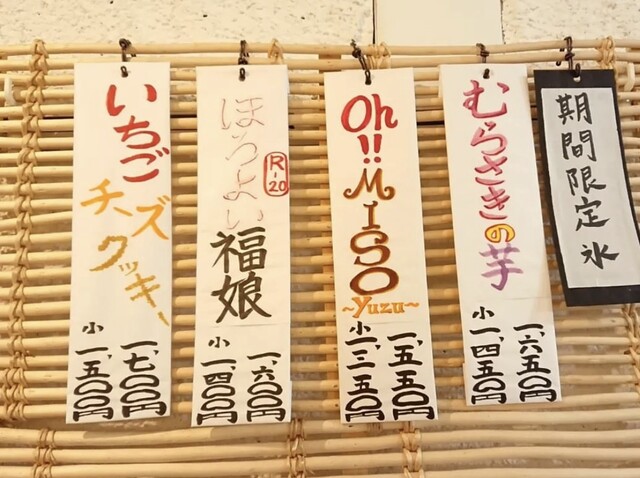 期間限定氷
むらさきの芋
一、六五〇円
小一、四五〇円
Oh!!
MISO
~Yuzu~
一、五五〇円
小一、三五〇円
ほろよい
R-20
福娘
一、六〇〇円
小一、四〇〇円
いちご
チーズ
クッキー
一、七〇〇円
小一、五〇〇円